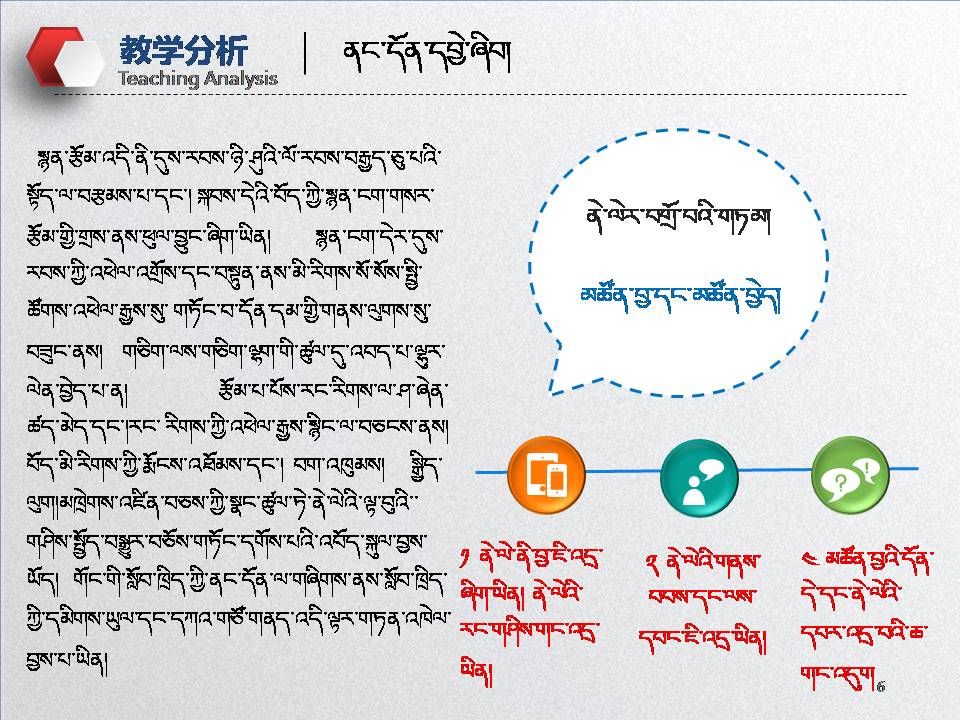 教学分析
Teaching Analysis
ནང་དོན་དབྱེ་ཞིབ།
སྙན་རྩོམ་འདི་ནི་དུས་རབས་ཉི་ཤུའི་ལོ་རབས་བརྒྱད་ཅུ་པའི་
སྟོད་ལ་བརྩམས་པ་དང་། སྐབས་དེའི་བོད་ཀྱི་སྙན་ངག་གསར་
རྩོམ་གྱི་གྲས་ནས་ཕུལ་བྱུང་ཞིག་ཡིན། སྙན་ངག་དེར་དུས་
རབས་ཀྱི་འཕེལ་འགྲོས་དང་བསྟུན་ནས་མི་རིགས་སོ་སོས་སྤྱི་
ཚོགས་འཕེལ་རྒྱས་སུ་ གཏོང་བ་དོན་དམ་གྱི་གནས་ལུགས་སུ་
བཟུང་ནས། གཅིག་ལས་གཅིག་ལྷག་གི་ཚུལ་དུ་འབད་པ་ལྷུར་
ལེན་བྱེད་པ་ན། རྩོམ་པ་པོས་རང་རིགས་ལ་ཤ་ཞེན་
ཚད་མེད་དང་།རང་ རིགས་ཀྱི་འཕེལ་རྒྱས་སྙིང་ལ་བཅངས་ནས།
བོད་མི་རིགས་ཀྱི་རྨོངས་འཐོམས་དང་། བག་འཁུམས། སྤྱིད་
ལུག།མཁྲེགས་འཛིན་བཅས་ཀྱི་སྣང་ཚུལ་ཏེ་ནེ་ལེའི་ལྟ་བུའི་
གཤིས་སྤྱོད་བསྒྱུར་བཅོས་གཏོང་དགོས་པའི་འབོད་སྐུལ་བྱས་
ཡོད། གོང་གི་སློབ་ཁྲིད་ཀྱི་ནང་དོན་ལ་གཞིགས་ནས་སློབ་ཁྲིད་
ཀྱི་དམིགས་ཡུལ་དང་དཀའ་གཙོ་གནད་འདི་ལྟར་གཏན་འཁེལ་
བྱས་པ་ཡིན།
ནེ་ལེར་བགྲོ་བའི་གཏམ།
མཚོན་བྱ་དང་མཚོན་བྱེད།
༡ ནེ་ལེ་ནི་བྱ་ཇི་འདྲ་
ཞིག་ཡིན། ནེ་ལེའི་
རང་གཤིས་གང་འདྲ་
ཡིན།
༢ ནེ་ལེའི་གནས་
བབས་དང་ལས་
དབང་ཇི་འདྲ་ཡིན།
༤ མཚོན་བྱའི་དོན་
དེ་དང་ནེ་ལེའི་
དཔར་འདྲ་བའི་ཆ་
གང་འདུག
6